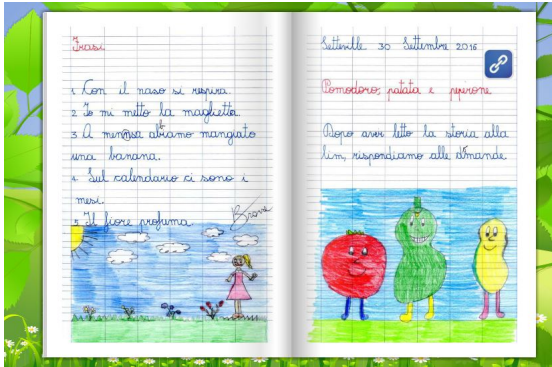 Frasi.
1 Con il naso si respira.
2 Io mi metto la maglietta.
3 A mensa abbiamo mangiato
una banana.
4. Sul calendario ci sono i
mesi.
5. Il fiore profuma.
Brava
Setteville 30 Settembre 2016
Pomodoro, patata e peperone
Dopo aver letto la storia alla
lim, rispondiamo alle domande.